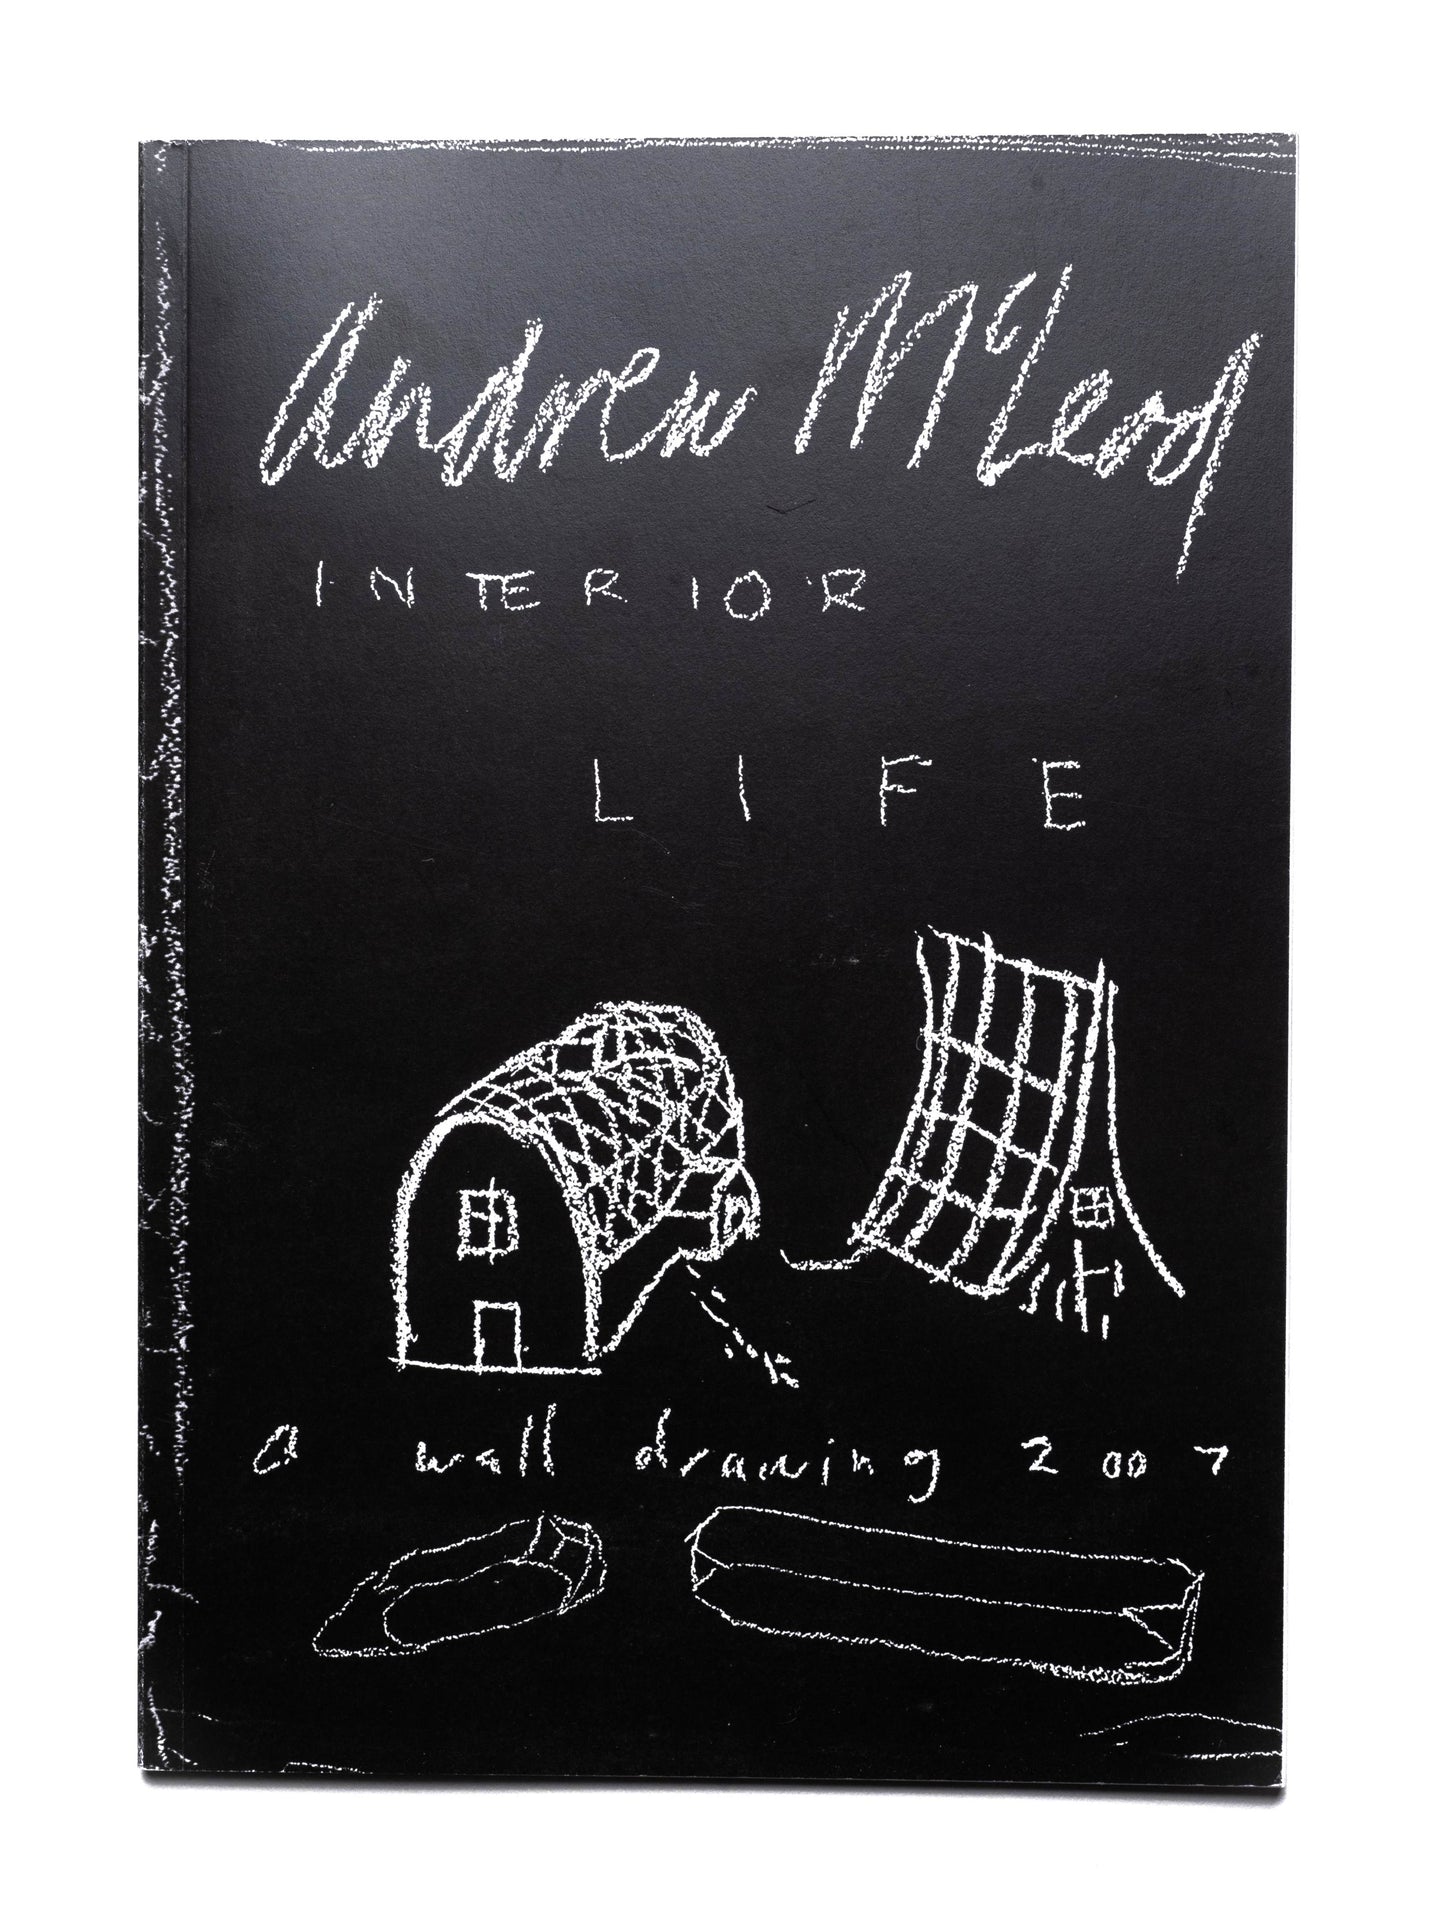 Andrew McLeod
INTERIOR
LIFE
a wall drawing 2007